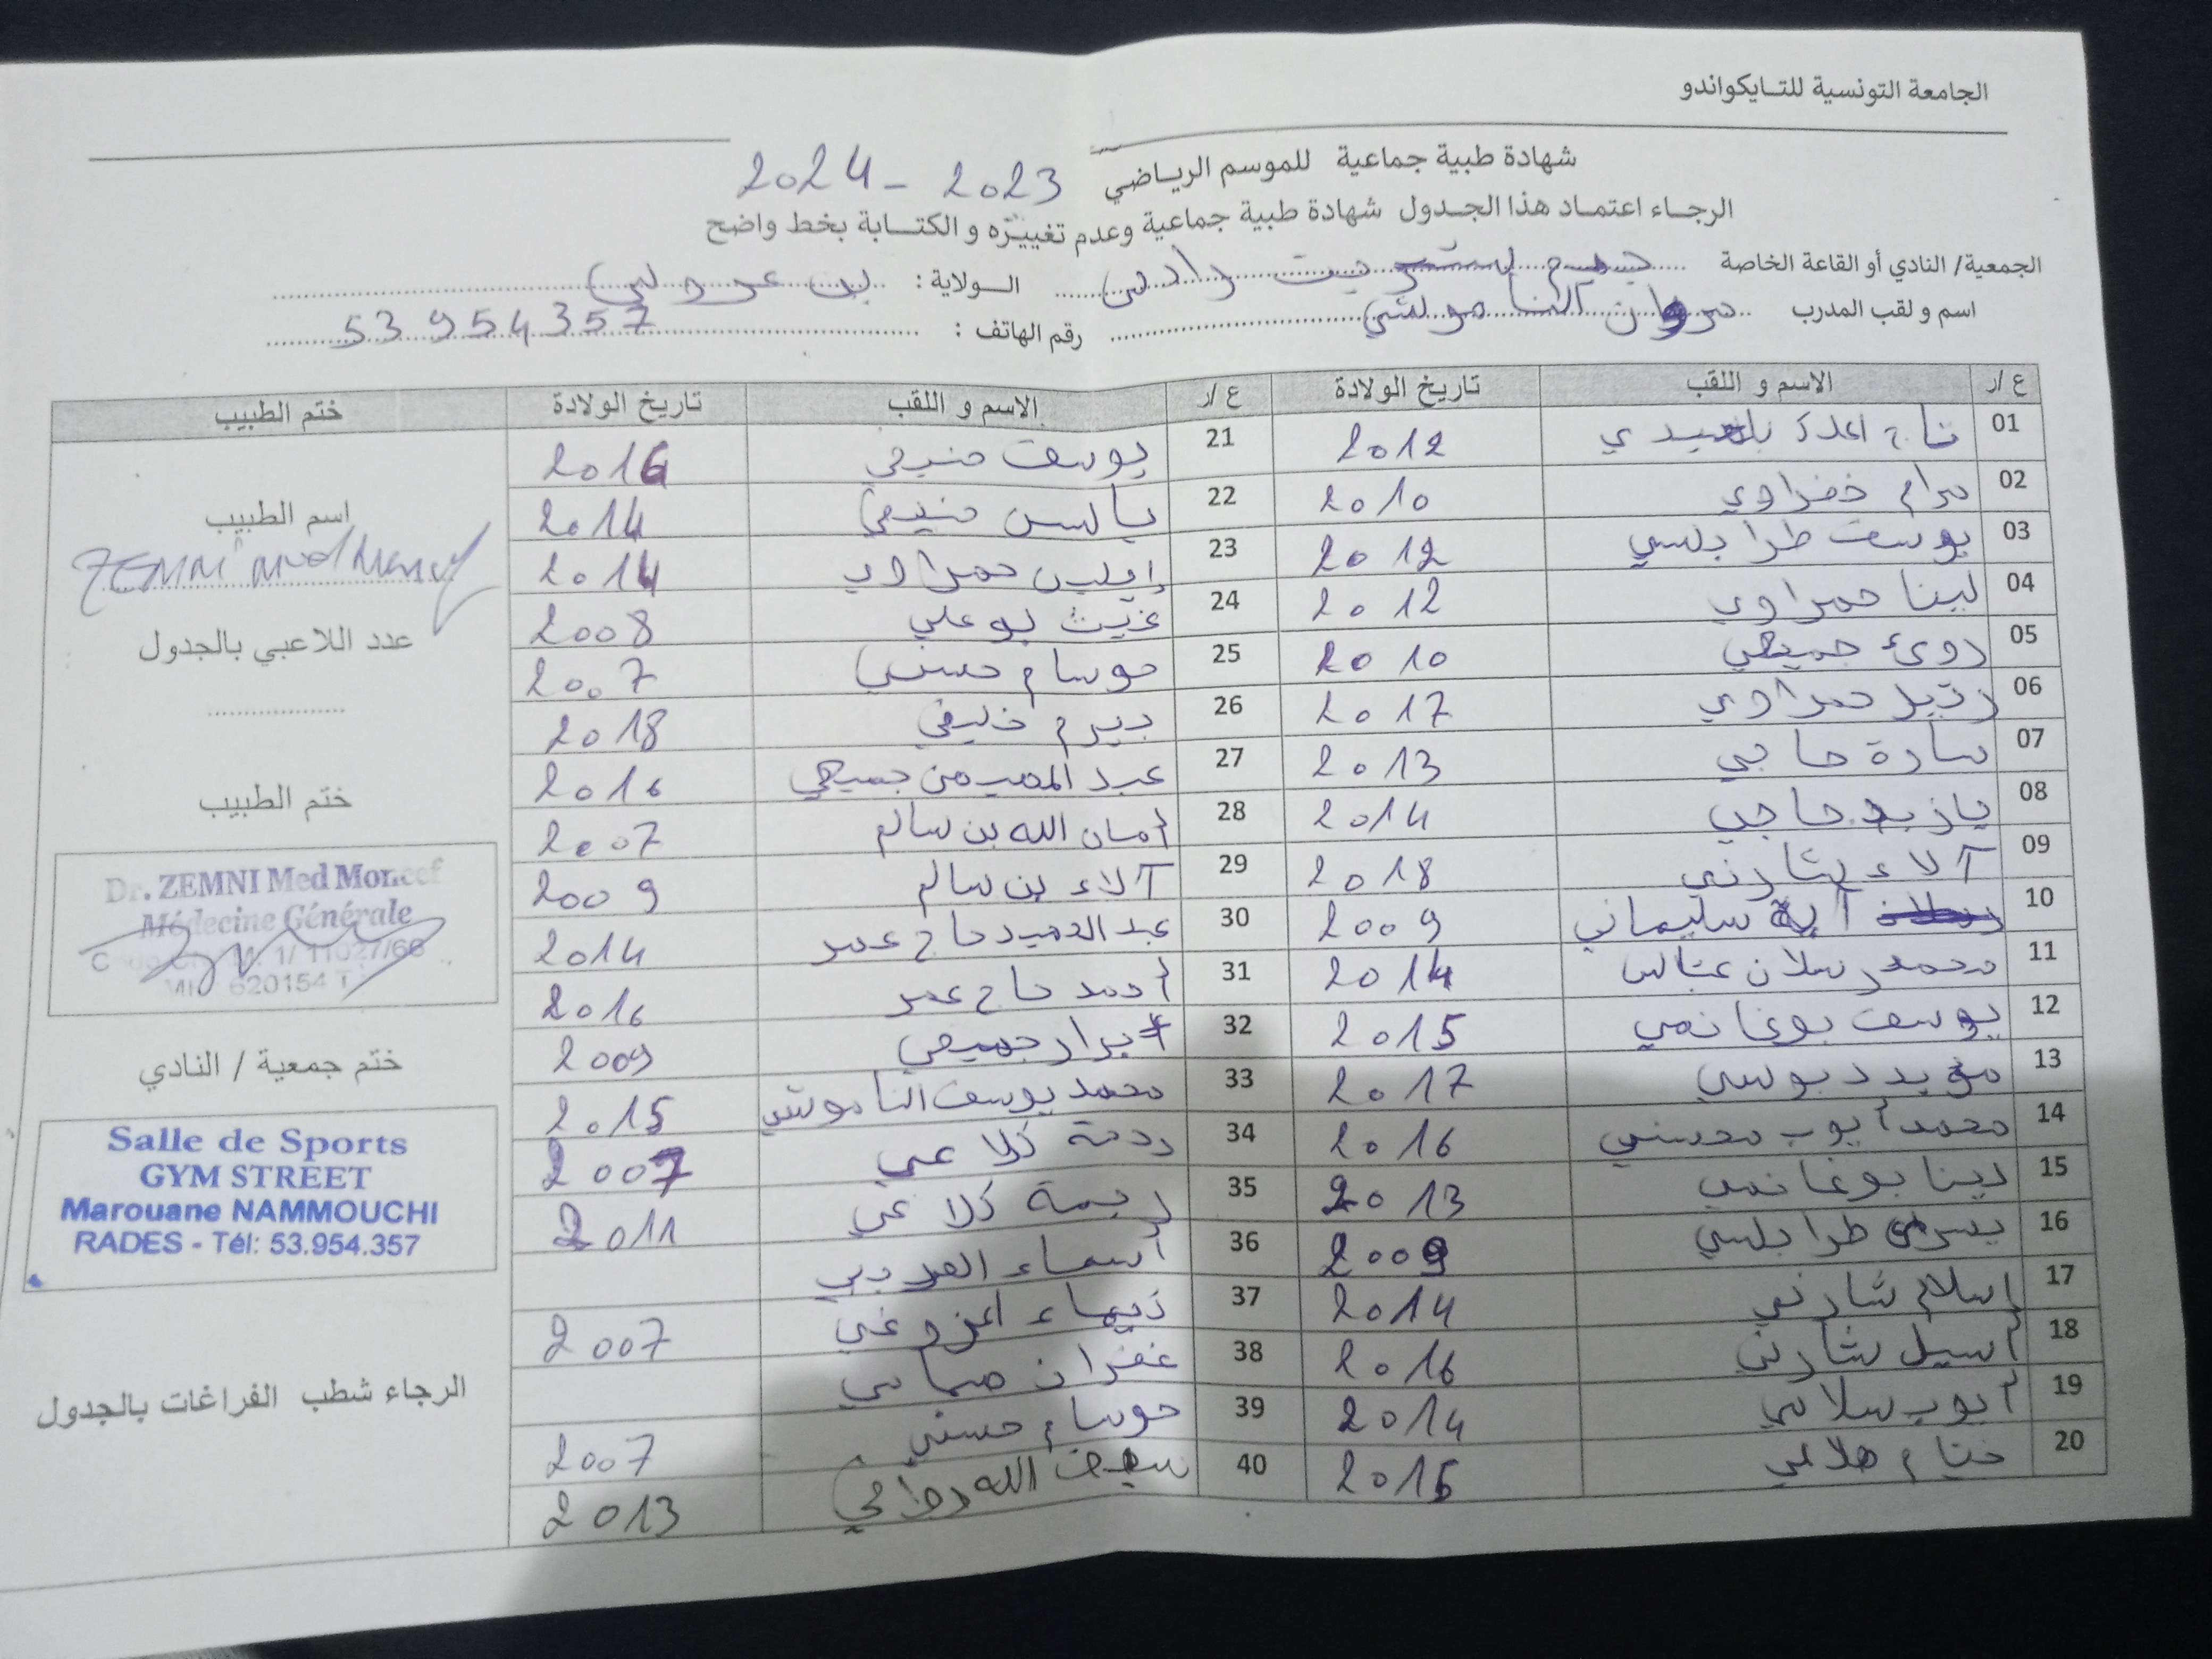 الجامعة التونسية للتايكواندو
شهادة طبية جماعية للموسم الرياضي 2023 - 2024
الرجاء اعتماد هذا الجدول شهادة طبية جماعية وعدم تغييره و الكتابة بخط واضح
الجمعية/ النادي أو القاعة الخاصة جيم ستريت رادس الولاية : بن عروس
اسم و لقب المدرب مروان الناموشي رقم الهاتف : 53 954 357
ع /ر الاسم و اللقب تاريخ الولادة ع /ر الاسم و اللقب تاريخ الولادة ختم الطبيب
01 2012 21 يوسف منيعي 2016
02 مرام خضراوي 2010 22 ياسين منيعي 2014
03 يوسف طرابلسي 2012 23 إيلين حمراوي 2014
04 لينا حمراوي 2012 24 غيث بوعلي 2008
05 رؤى جميعي 2010 25 حوسام حسني 2007
06 رتيل حمراوي 2017 26 بيرم خليفي 2018
07 سارة حاجي 2013 27 عبد المهيمن جميعي 2016
08 يازيد حاجي 2014 28 أمان الله بن سالم 2007
09 آلاء شارني 2018 29 آلاء بن سالم 2009
10 آية سليماني 2009 30 عبد الحميد حاج عمر 2014
11 محمد رسلان عباس 2014 31 أحمد حاج عمر 2016
12 يوسف بوغانمي 2015 32 أبرار جميعي 2009
13 مؤيد دبوسي 2017 33 محمد يوسف الناموشي 2015
14 محمد أيوب محسني 2016 34 رحمة كلاعي 2007
15 دينا بوغانمي 2013 35 ريمة كلاعي 2011
16 يسرى طرابلسي 2009 36 أسماء العريبي
17 إسلام شارني 2014 37 المزوغي 2007
18 أسيل شارني 2016 38 غفران
19 أيوب سلامي 2014 39 حوسام حسني 2007
20 ختام 2015 40 سيف الله 2013
اسم الطبيب
ZEMNI
عدد اللاعبي بالجدول
ختم الطبيب
Dr. ZEMNI Med Moncef
Médecine Générale
1/ 11027/66
620154
ختم جمعية / النادي
Salle de Sports
GYM STREET
Marouane NAMMOUCHI
RADES - Tél: 53.954.357
الرجاء شطب الفراغات بالجدول